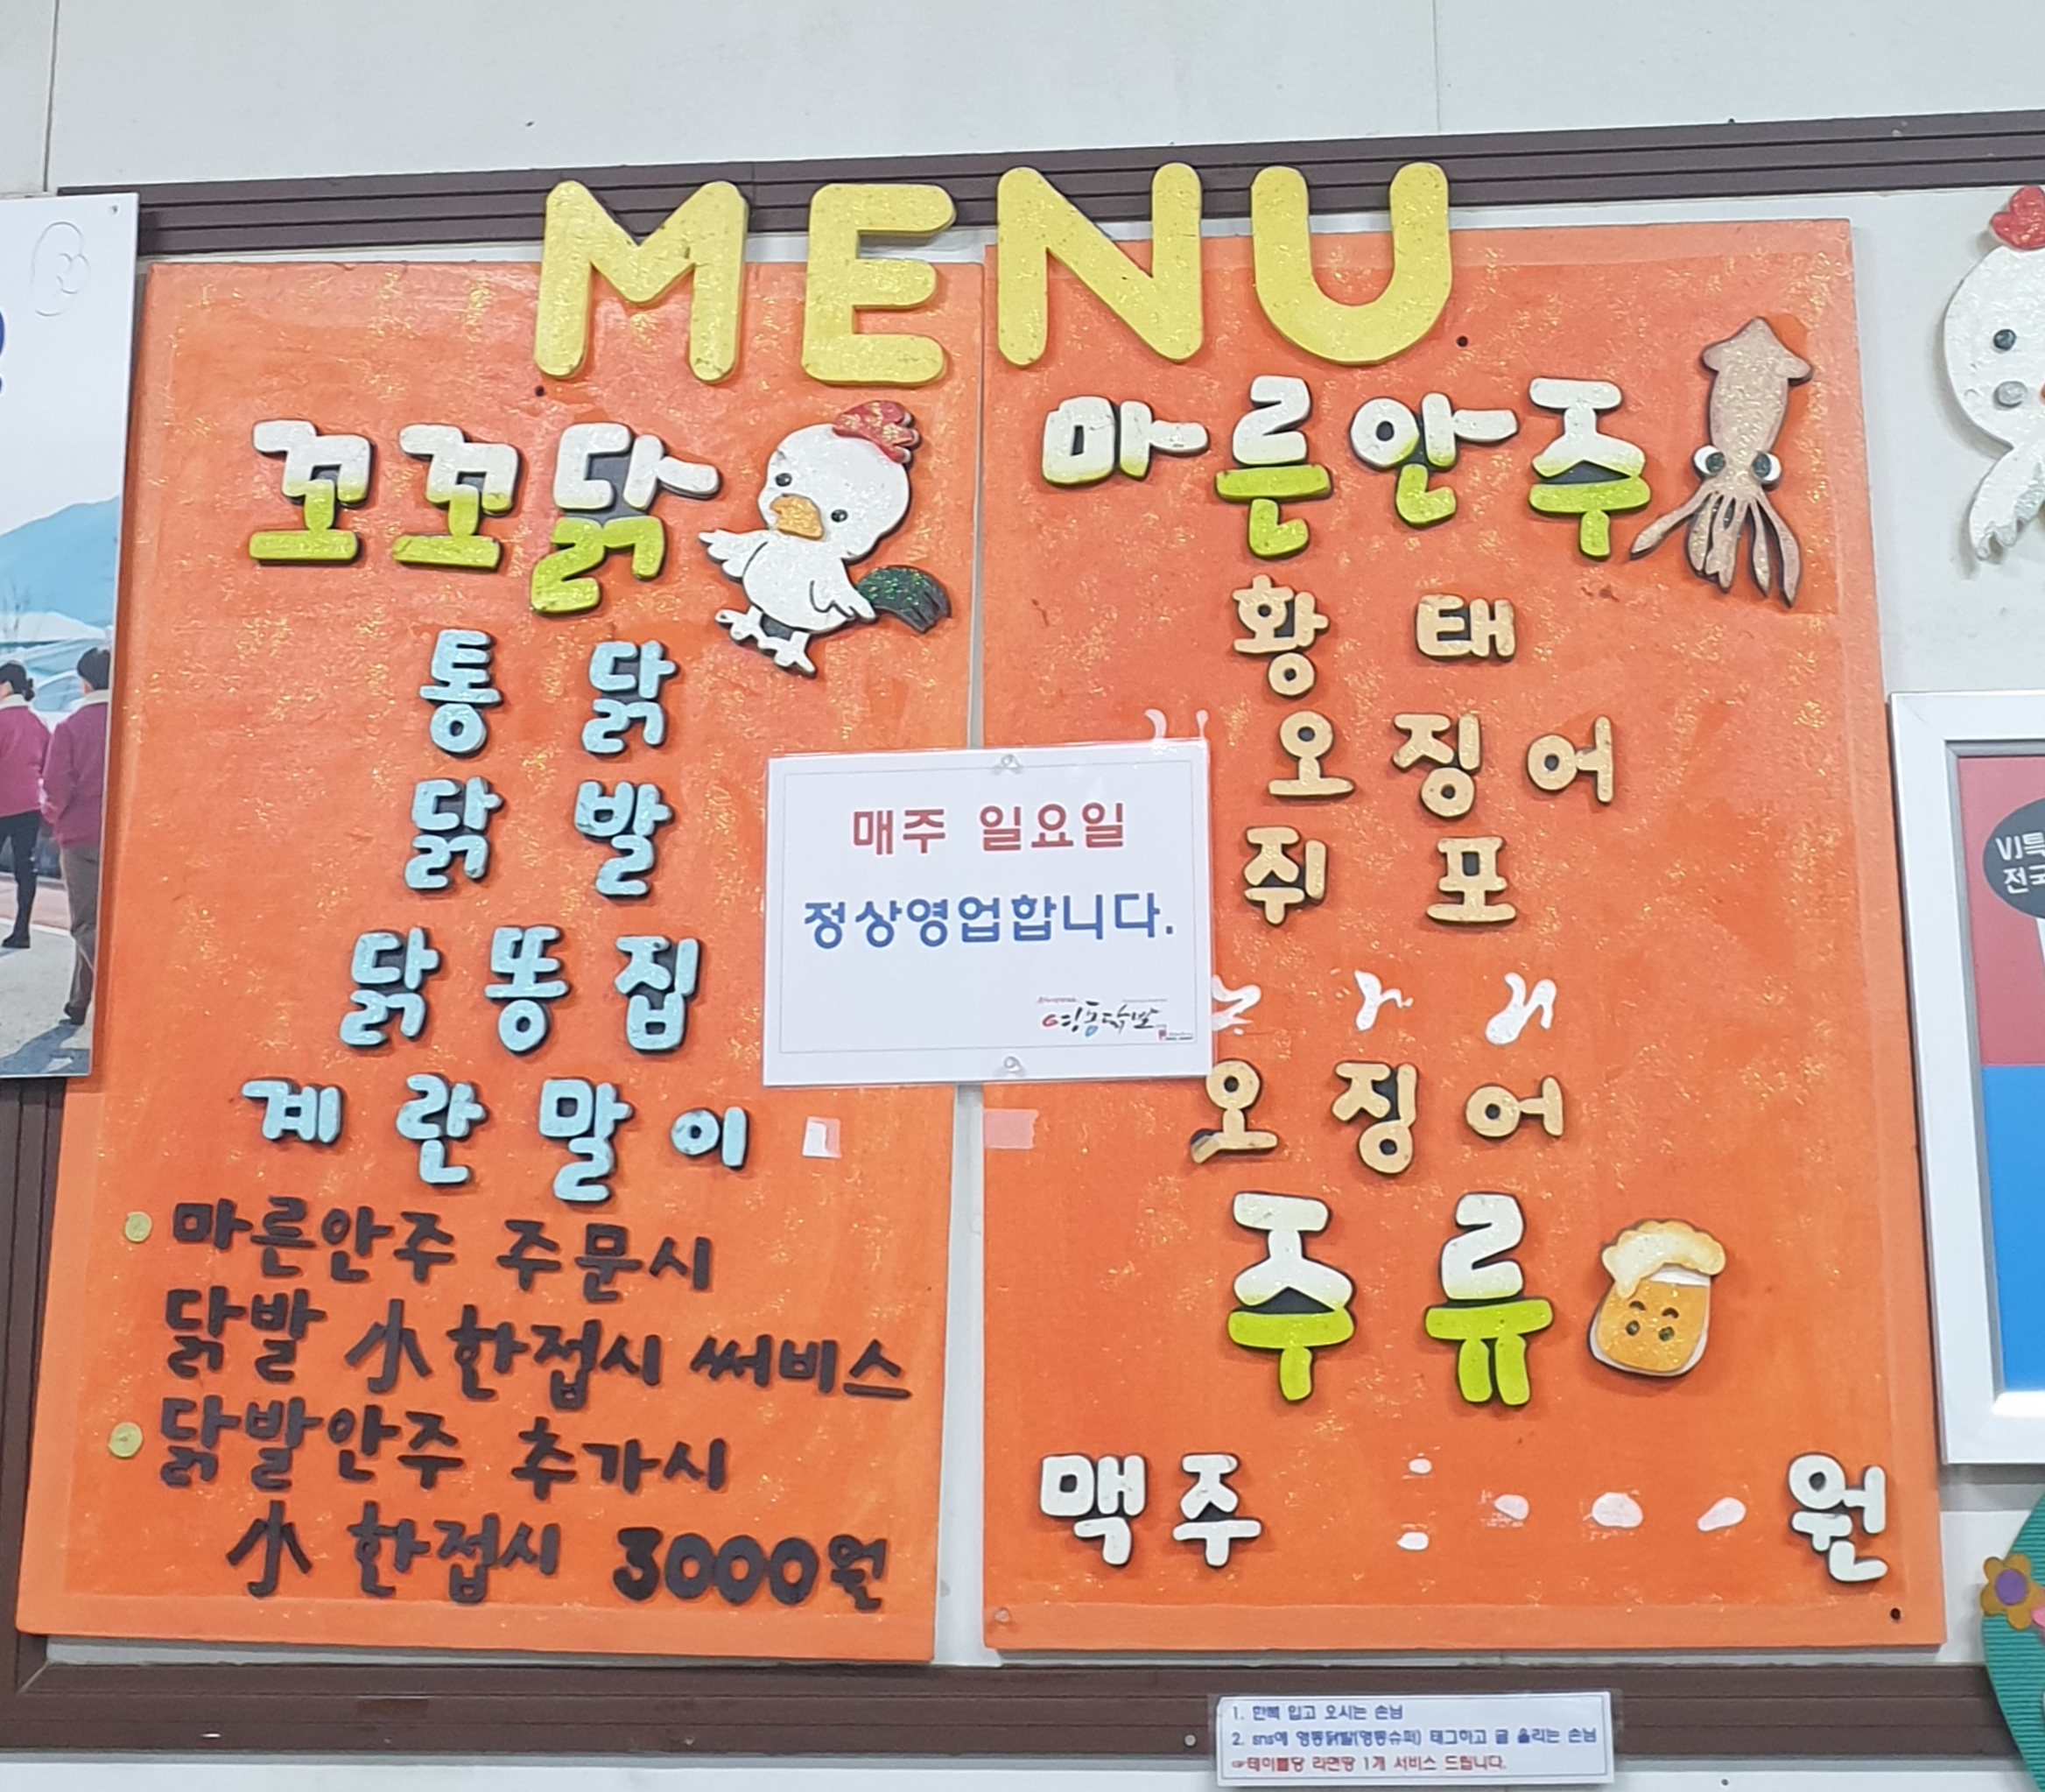 MENU
꼬꼬닭
통닭
닭발
닭똥집
계란말이
마른안주 주문시
닭발 小 한접시 써비스
닭발안주 추가시
小 한접시 3000원
매주 일요일
정상영업합니다.
영동닭발
마른안주
황태
오징어
쥐포
오징어
주류
맥주 원
VJ특
전국
1. 한복 입고 오시는 손님
2. sns에 영동닭발(영동슈퍼) 태그하고 글 올리는 손님
☞테이블당 라면땅 1개 서비스 드립니다.